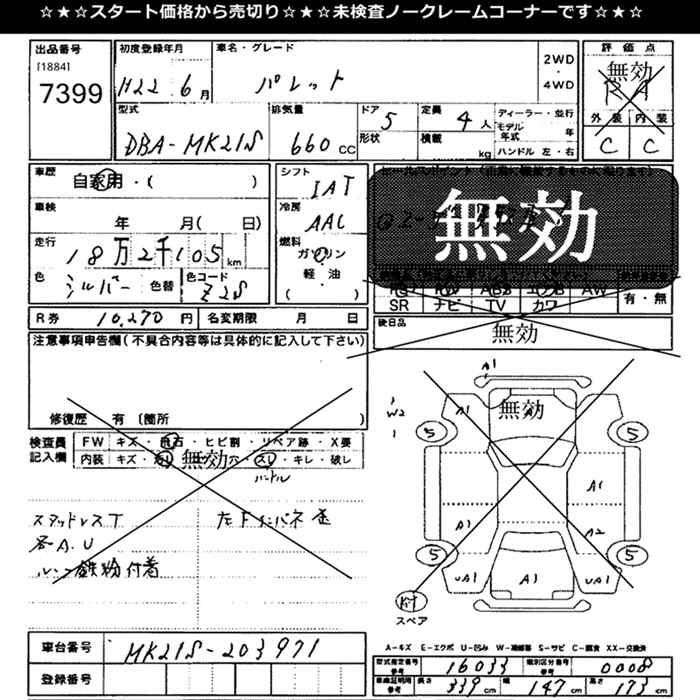 ☆★☆★スタート価格から売切り☆★☆★未検査ノークレームコーナーです☆★☆
出品番号 初度登録年月 車名・グレード 2WD・4WD 評価点
[1884]
7399 H22 6月 パレット 無効 RA
型式 排気量 ドア 5 定員 4人 ディーラー・並行 外装 内装
DBA-MK21S 660cc 形状 積載 kg モデル年式 年 C C
ハンドル 左・右
車歴 自家用・( ) シフト IAT
車検 年 月( 日) 冷房 AAC 無効
走行 18万2千105km 燃料 ガソリン・軽油・( )
色 シルバー 色替 色コード Z2S
SR ナビ TV カワ 有・無
R券 10,270円 名変期限 月 日 後日品 無効
注意事項申告欄(不具合内容等は具体的に記入して下さい)
修復歴 有〔箇所 〕
検査員記入欄 FW キズ・飛石・ヒビ割・リペア跡・X要
内装 無効 穴・スレ・キレ・破レ
ハンドル
スタッドレスT
各A.U
鉄粉付着
A1
W2 A1 無効
5 5
A1
A1 A2
5 5
UA1 A1 UA1
スペア
A-キズ E-エクボ U-凹み W-補修跡 S-サビ C-腐食 XX-交換済
車台番号 MK21S-203971 型式指定番号 参考 16033 類別区分番号 参考 0008
登録番号 車検証利用 参考 長さ 339cm 幅 147cm 高さ 173cm